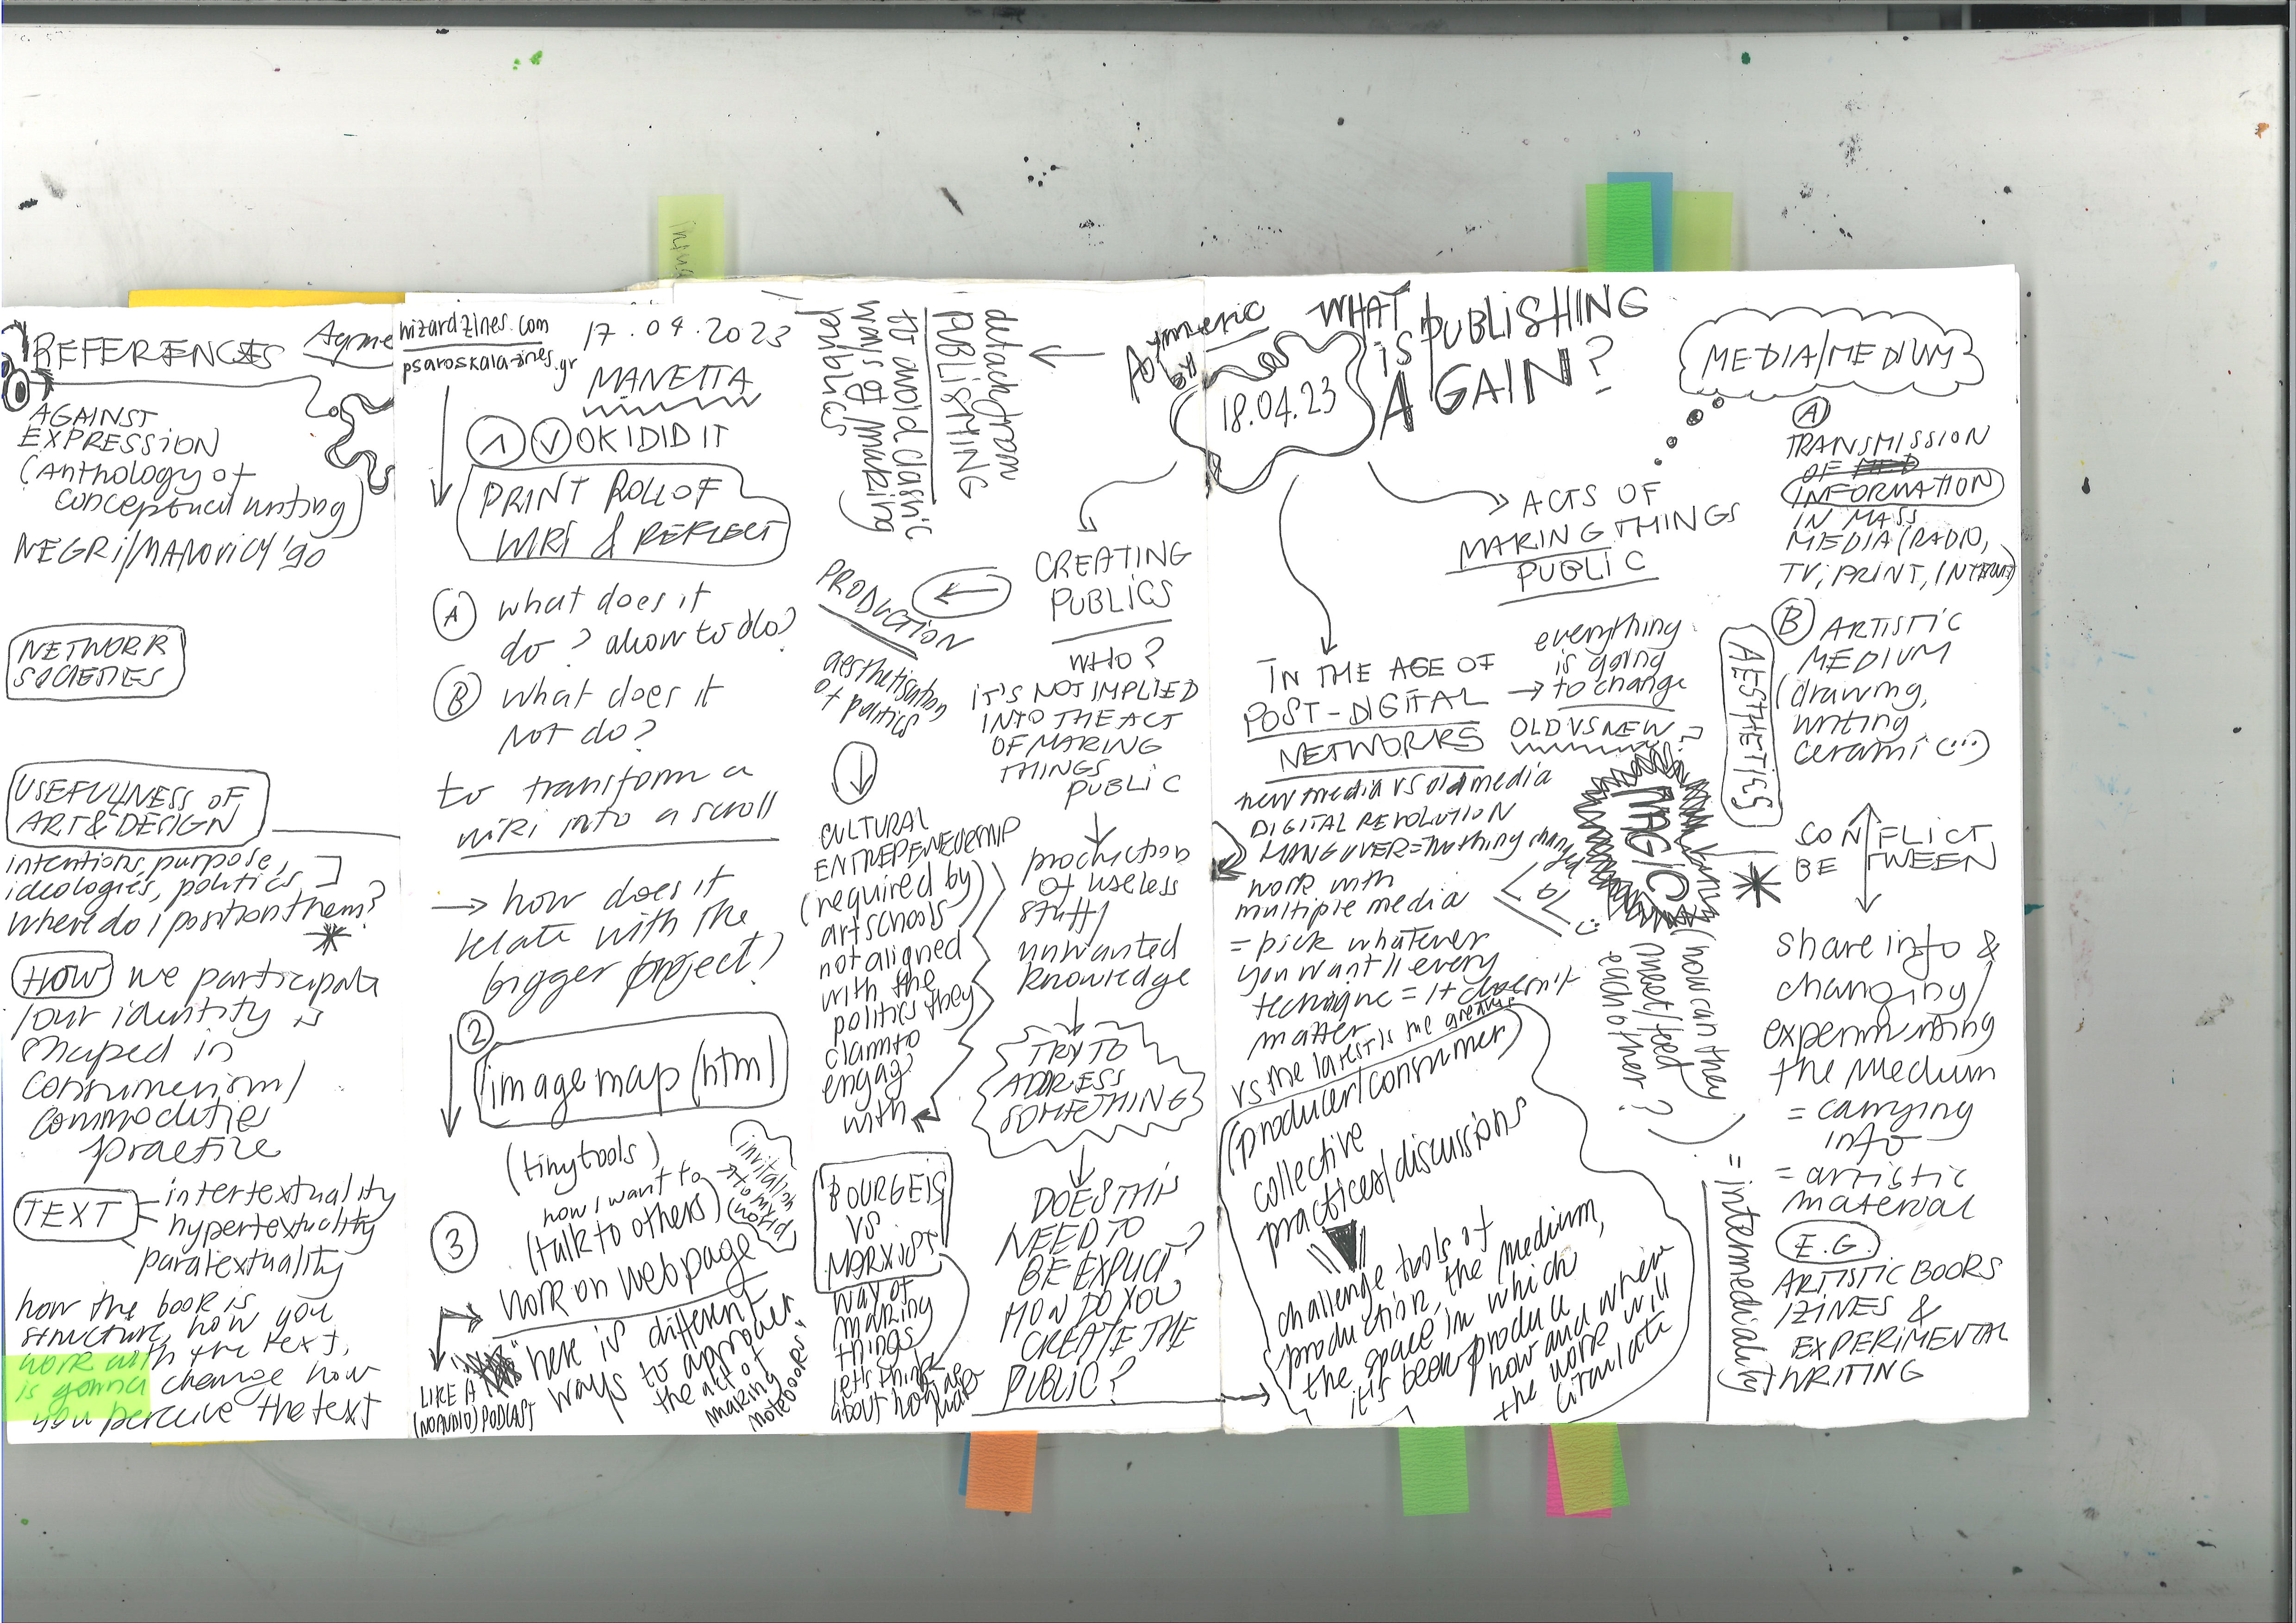 REFERENCES
AGAINST
EXPRESSION
(Anthology of
conceptual writing)
NEGRI/MANOVICH '90
NETWORK
SOCIETIES
USEFULLNESS OF
ART & DESIGN
intentions, purpose,
ideologies, politics
Where do I position them?
HOW we participate
/our identity is
shaped in
consumerism/
commodities
practice
TEXT
intertextuality
hypertextuality
paratextuality
how the book is
structure, how you
work with the text,
is gonna change how
you perceive the text
wizardzines.com
psaroskalazines.gr
17.04.2023
MANETTA
1 V OK I DID IT
PRINT ROLL OF
WIKI & REFLECT
A what does it
do? allow to do?
B what does it
not do?
to transform a
wiki into a scroll
→ how does it
relate with the
bigger project?
2
image map (html)
(tiny tools)
how I want to
(talk to others)
invitation
to my
world
3
work on webpage
"here is different
ways to approach
the act of
making
notebooks"
LIKE A
(NO AUDIO) PODCAST
detach from
PUBLISHING
to avoid classic
ways of making
publics
PRODUCTION
aesthetisation
of politics
CULTURAL
ENTREPENEURSHIP
(required by
art schools
not aligned
with the
politics they
claim to
engag
with
BOURGEIS
VS
MARXIST
way of
making
things
let's think
about how
Aymeric
18.04.23
WHAT
IS PUBLISHING
AGAIN?
CREATING
PUBLICS
WHO?
IT'S NOT IMPLIED
INTO THE ACT
OF MAKING
THINGS
PUBLIC
production
of useless
stuff/
unwanted
knowledge
TRY TO
ADDRESS
SOMETHING
DOES THIS
NEED TO
BE EXPLICIT?
HOW DO YOU
CREATE THE
PUBLIC?
ACTS OF
MAKING THINGS
PUBLIC
IN THE AGE OF
POST-DIGITAL
NETWORKS
everything
is going
→ to change
OLD VS NEW?
new media vs old media
DIGITAL REVOLUTION
nothing changed
work with
multiple media
= pick whatever
you want // every
technique = it doesn't
matter
vs the latest is the greatest
(producer/consumer)
collective
practices/discussions
challenge tools of
production, the medium,
the space in which
it's been produce
how and when
the work will
circulate
MEDIA/MEDIUM
A
TRANSMISSION
OF
INFORMATION
IN MASS
MEDIA (RADIO,
TV, PRINT, INTERNET)
B ARTISTIC
MEDIUM
(drawing,
writing
cerami (...)
AESTHETICS
MAGIC
CONFLICT
BETWEEN
(how can they
meet/feed
each other?)
= intermediality
share info &
changing/
experimenting
the medium
= carrying
info
= artistic
material
E.G.
ARTISTIC BOOKS
/ZINES &
EXPERIMENTAL
WRITING